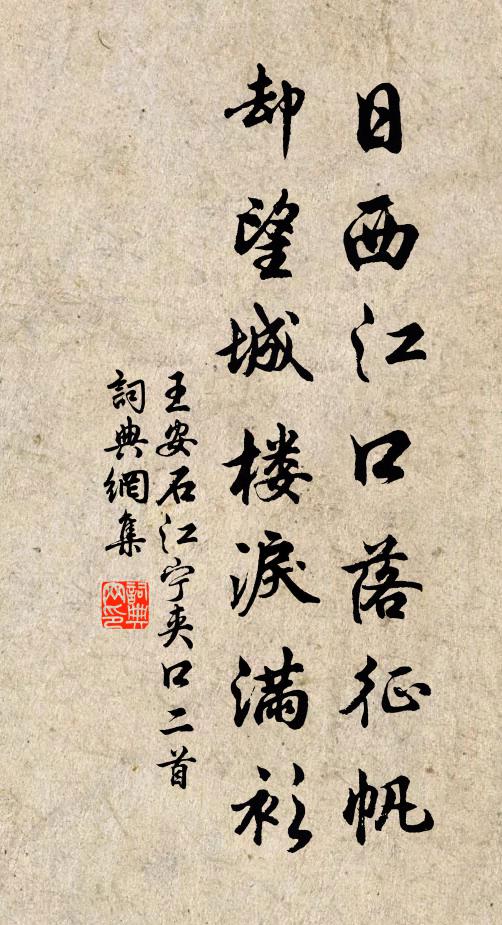 日西江口落征帆
却望城楼淚滿衫
王安石江宁夹口二首
詞典網集
詞典
网印